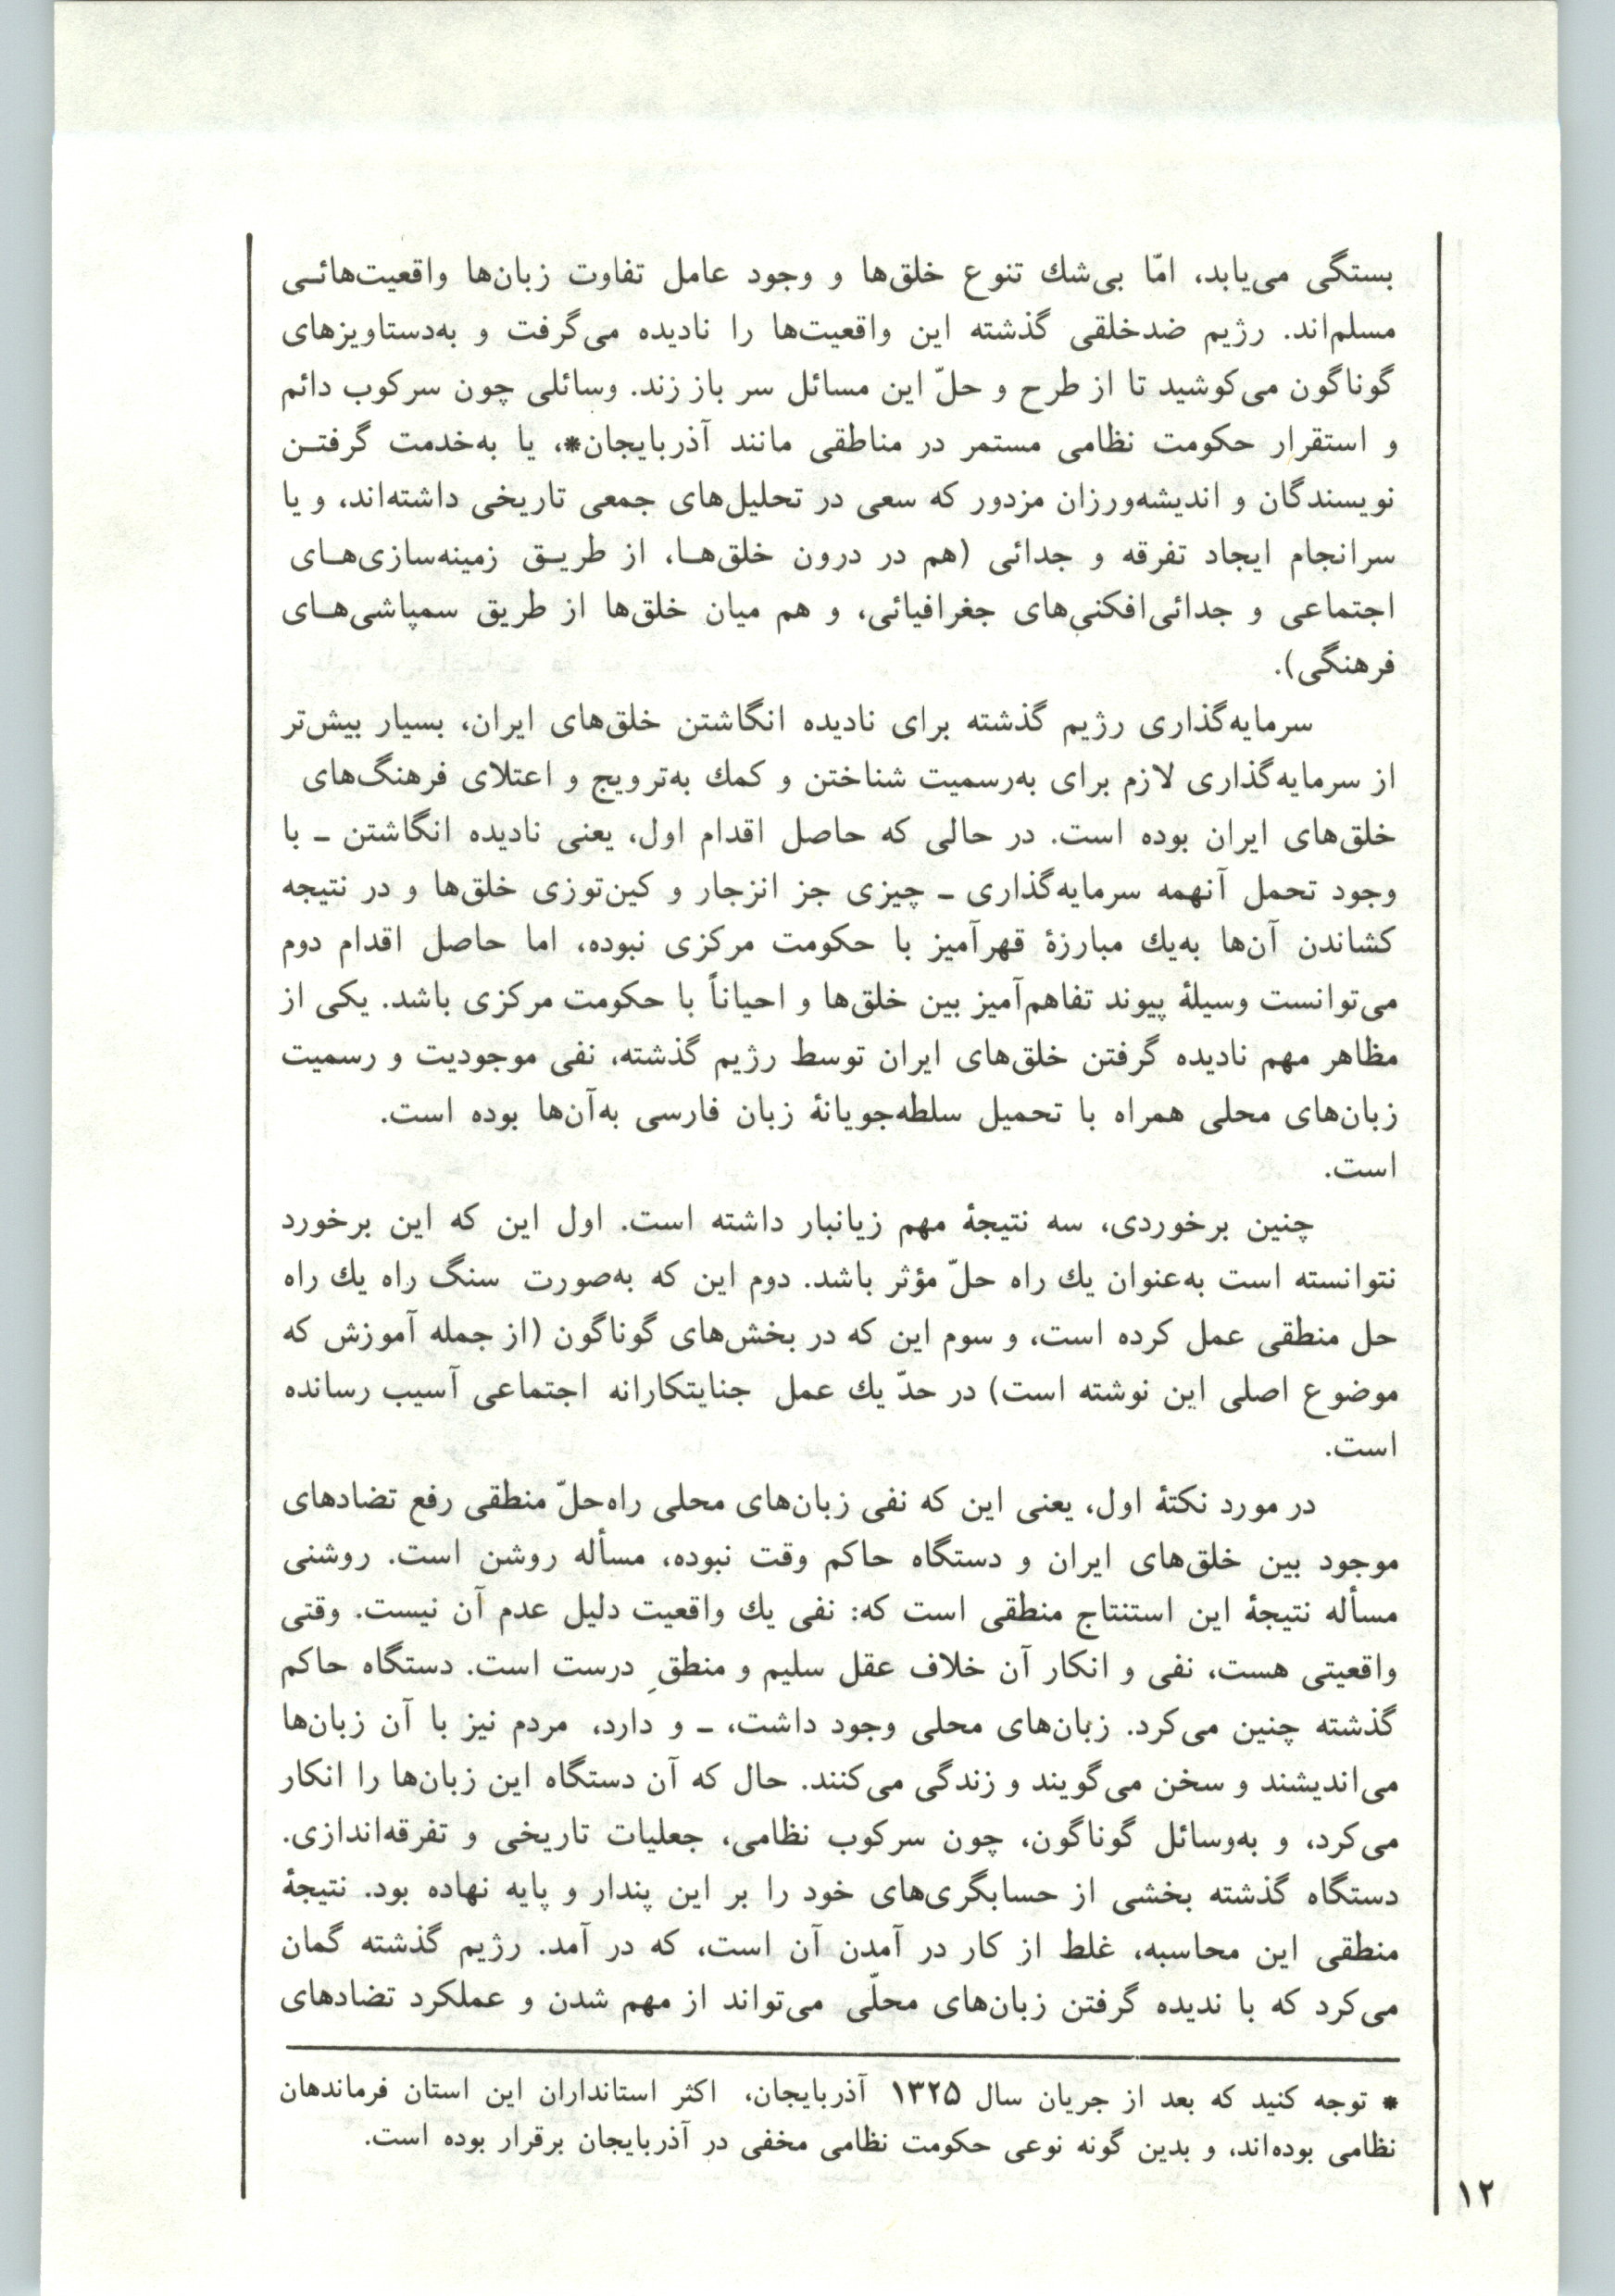 بستگی می‌یابد، امّا بی‌شك تنوع خلق‌ها و وجود عامل تفاوت زبان‌ها واقعیت‌هائـی
مسلم‌اند. رژیم ضدخلقی گذشته این واقعیت‌ها را نادیده می‌گرفت و به‌دستاویزهای
گوناگون می‌کوشید تا از طرح و حلّ این مسائل سر باز زند. وسائلی چون سرکوب دائم
و استقرار حکومت نظامی مستمر در مناطقی مانند آذربایجان*، یا به‌خدمت گرفتـن
نویسندگان و اندیشه‌ورزان مزدور که سعی در تحلیل‌های جمعی تاریخی داشته‌اند، و یا
سرانجام ایجاد تفرقه و جدائی (هم در درون خلق‌هـا، از طریـق زمینه‌سازی‌هـای
اجتماعی و جدائی‌افکنی‌های جغرافیائی، و هم میان خلق‌ها از طریق سمپاشی‌هـای
فرهنگی).
سرمایه‌گذاری رژیم گذشته برای نادیده انگاشتن خلق‌های ایران، بسیار بیش‌تر
از سرمایه‌گذاری لازم برای به‌رسمیت شناختن و کمك به‌ترویج و اعتلای فرهنگ‌های
خلق‌های ایران بوده است. در حالی که حاصل اقدام اول، یعنی نادیده انگاشتن ـ با
وجود تحمل آنهمه سرمایه‌گذاری ـ چیزی جز انزجار و کین‌توزی خلق‌ها و در نتیجه
کشاندن آن‌ها به‌یك مبارزهٔ قهرآمیز با حکومت مرکزی نبوده، اما حاصل اقدام دوم
می‌توانست وسیلهٔ پیوند تفاهم‌آمیز بین خلق‌ها و احیاناً با حکومت مرکزی باشد. یکی از
مظاهر مهم نادیده گرفتن خلق‌های ایران توسط رژیم گذشته، نفی موجودیت و رسمیت
زبان‌های محلی همراه با تحمیل سلطه‌جویانهٔ زبان فارسی به‌آن‌ها بوده است.
است.
چنین برخوردی، سه نتیجهٔ مهم زیانبار داشته است. اول این که این برخورد
نتوانسته است به‌عنوان یك راه حلّ مؤثر باشد. دوم این که به‌صورت سنگ راه یك راه
حل منطقی عمل کرده است، و سوم این که در بخش‌های گوناگون (از جمله آموزش که
موضوع اصلی این نوشته است) در حدّ یك عمل جنایتکارانه اجتماعی آسیب رسانده
است.
در مورد نکتهٔ اول، یعنی این که نفی زبان‌های محلی راه‌حلّ منطقی رفع تضادهای
موجود بین خلق‌های ایران و دستگاه حاکم وقت نبوده، مسأله روشن است. روشنی
مسأله نتیجهٔ این استنتاج منطقی است که: نفی یك واقعیت دلیل عدم آن نیست. وقتی
واقعیتی هست، نفی و انکار آن خلاف عقل سلیم و منطقِ درست است. دستگاه حاکم
گذشته چنین می‌کرد. زبان‌های محلی وجود داشت، ـ و دارد، مردم نیز با آن زبان‌ها
می‌اندیشند و سخن می‌گویند و زندگی می‌کنند. حال که آن دستگاه این زبان‌ها را انکار
می‌کرد، و به‌وسائل گوناگون، چون سرکوب نظامی، جعلیات تاریخی و تفرقه‌اندازی.
دستگاه گذشته بخشی از حسابگری‌های خود را بر این پندار و پایه نهاده بود. نتیجهٔ
منطقی این محاسبه، غلط از کار در آمدن آن است، که در آمد. رژیم گذشته گمان
می‌کرد که با ندیده گرفتن زبان‌های محلّی می‌تواند از مهم شدن و عملکرد تضادهای
* توجه کنید که بعد از جریان سال ۱۳۲۵ آذربایجان، اکثر استانداران این استان فرماندهان
نظامی بوده‌اند، و بدین گونه نوعی حکومت نظامی مخفی در آذربایجان برقرار بوده است.
۱۲